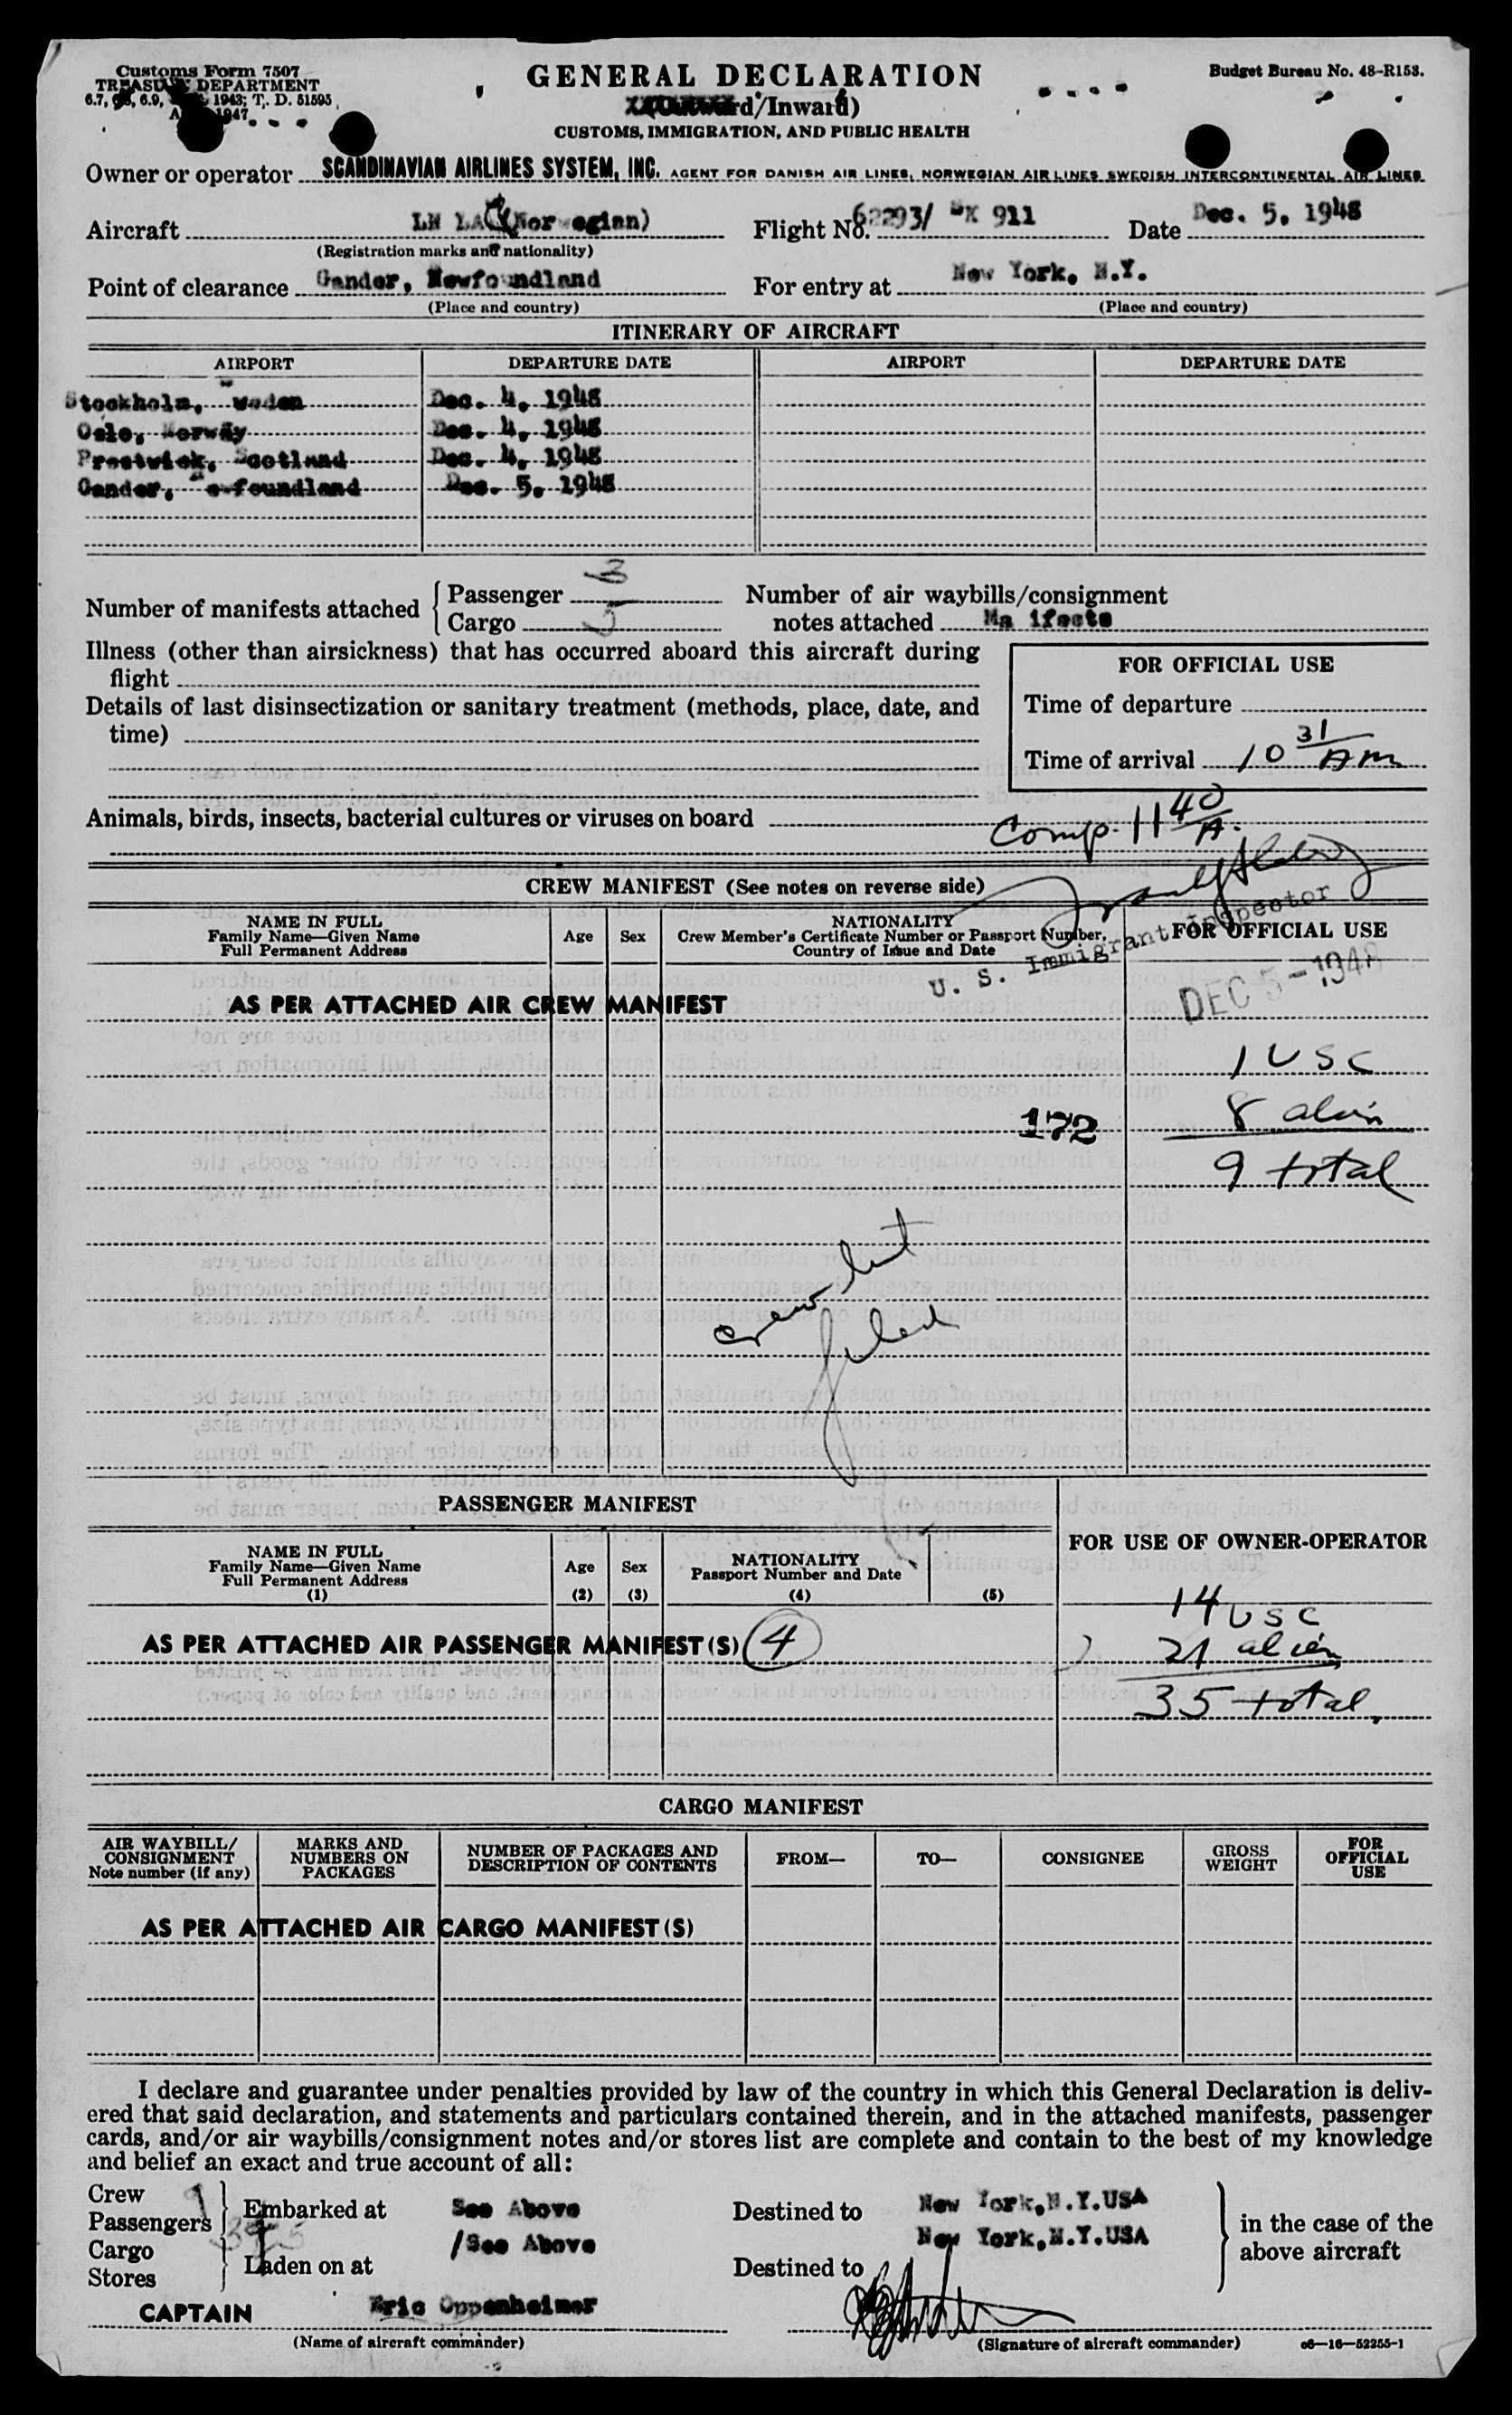 Customs Form 7507
TREASURY DEPARTMENT
6.7, 6.8, 6.9, 1943; T. D. 51595,
1947
GENERAL DECLARATION
(Outward/Inward)
CUSTOMS, IMMIGRATION, AND PUBLIC HEALTH
Budget Bureau No. 48-R153.
Owner or operator SCANDINAVIAN AIRLINES SYSTEM, INC. AGENT FOR DANISH AIR LINES, NORWEGIAN AIR LINES SWEDISH INTERCONTINENTAL AIR LINES
Aircraft (Norwegian) Flight No. 62293/ SK 911 Date Dec. 5, 1948
(Registration marks and nationality)
Point of clearance Gander, Newfoundland For entry at New York, N.Y.
(Place and country) (Place and country)
ITINERARY OF AIRCRAFT
AIRPORT DEPARTURE DATE AIRPORT DEPARTURE DATE
Stockholm, Sweden Dec. 4, 1948
Oslo, Norway Dec. 4, 1948
Prestwick, Scotland Dec. 4, 1948
Gander, Newfoundland Dec. 5, 1948
Number of manifests attached { Passenger 3 Number of air waybills/consignment
Cargo 5 notes attached Ma ifests
Illness (other than airsickness) that has occurred aboard this aircraft during
flight
Details of last disinsectization or sanitary treatment (methods, place, date, and
time)
FOR OFFICIAL USE
Time of departure
Time of arrival 10 31 AM
Animals, birds, insects, bacterial cultures or viruses on board
Comp. 11 40 A.
CREW MANIFEST (See notes on reverse side)
U. S. Immigrant Inspector
NAME IN FULL
Family Name—Given Name
Full Permanent Address
Age Sex
NATIONALITY
Crew Member's Certificate Number or Passport Number,
Country of Issue and Date
FOR OFFICIAL USE
AS PER ATTACHED AIR CREW MANIFEST
DEC 5-1948
1 USC
172 8 alien
9 total
crew list
filed
PASSENGER MANIFEST
FOR USE OF OWNER-OPERATOR
NAME IN FULL
Family Name—Given Name
Full Permanent Address
(1)
Age
(2)
Sex
(3)
NATIONALITY
Passport Number and Date
(4)
(5)
14 USC
AS PER ATTACHED AIR PASSENGER MANIFEST(S) 4 21 alien
35 total.
CARGO MANIFEST
AIR WAYBILL/
CONSIGNMENT
Note number (if any)
MARKS AND
NUMBERS ON
PACKAGES
NUMBER OF PACKAGES AND
DESCRIPTION OF CONTENTS
FROM—
TO—
CONSIGNEE
GROSS
WEIGHT
FOR
OFFICIAL
USE
AS PER ATTACHED AIR CARGO MANIFEST(S)
I declare and guarantee under penalties provided by law of the country in which this General Declaration is deliv-
ered that said declaration, and statements and particulars contained therein, and in the attached manifests, passenger
cards, and/or air waybills/consignment notes and/or stores list are complete and contain to the best of my knowledge
and belief an exact and true account of all:
Crew 9
Passengers 35
Embarked at See Above Destined to New York,N.Y.USA
Cargo
Stores
Laden on at /See Above Destined to New York,N.Y.USA
in the case of the
above aircraft
CAPTAIN Eric Oppenheimer
(Name of aircraft commander) (Signature of aircraft commander) c6—16—52255-1